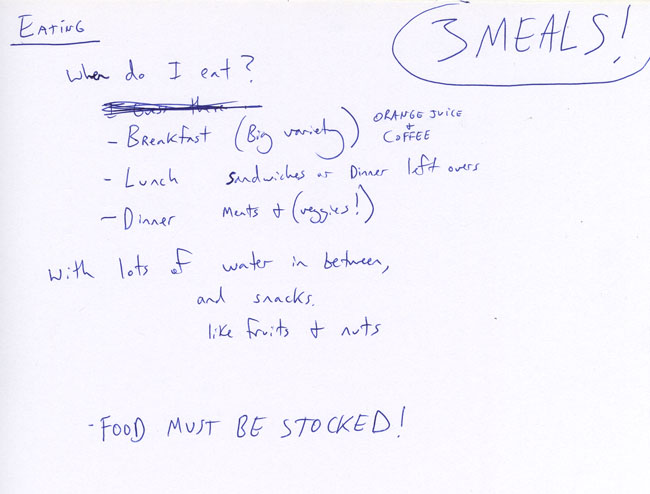 EATING
3 MEALS!
When do I eat?
- Breakfast (Big variety) ORANGE JUICE + COFFEE
- Lunch Sandwiches or Dinner left overs
- Dinner Meats + (veggies!)
with lots of water in between,
and snacks.
like fruits + nuts
- FOOD MUST BE STOCKED!